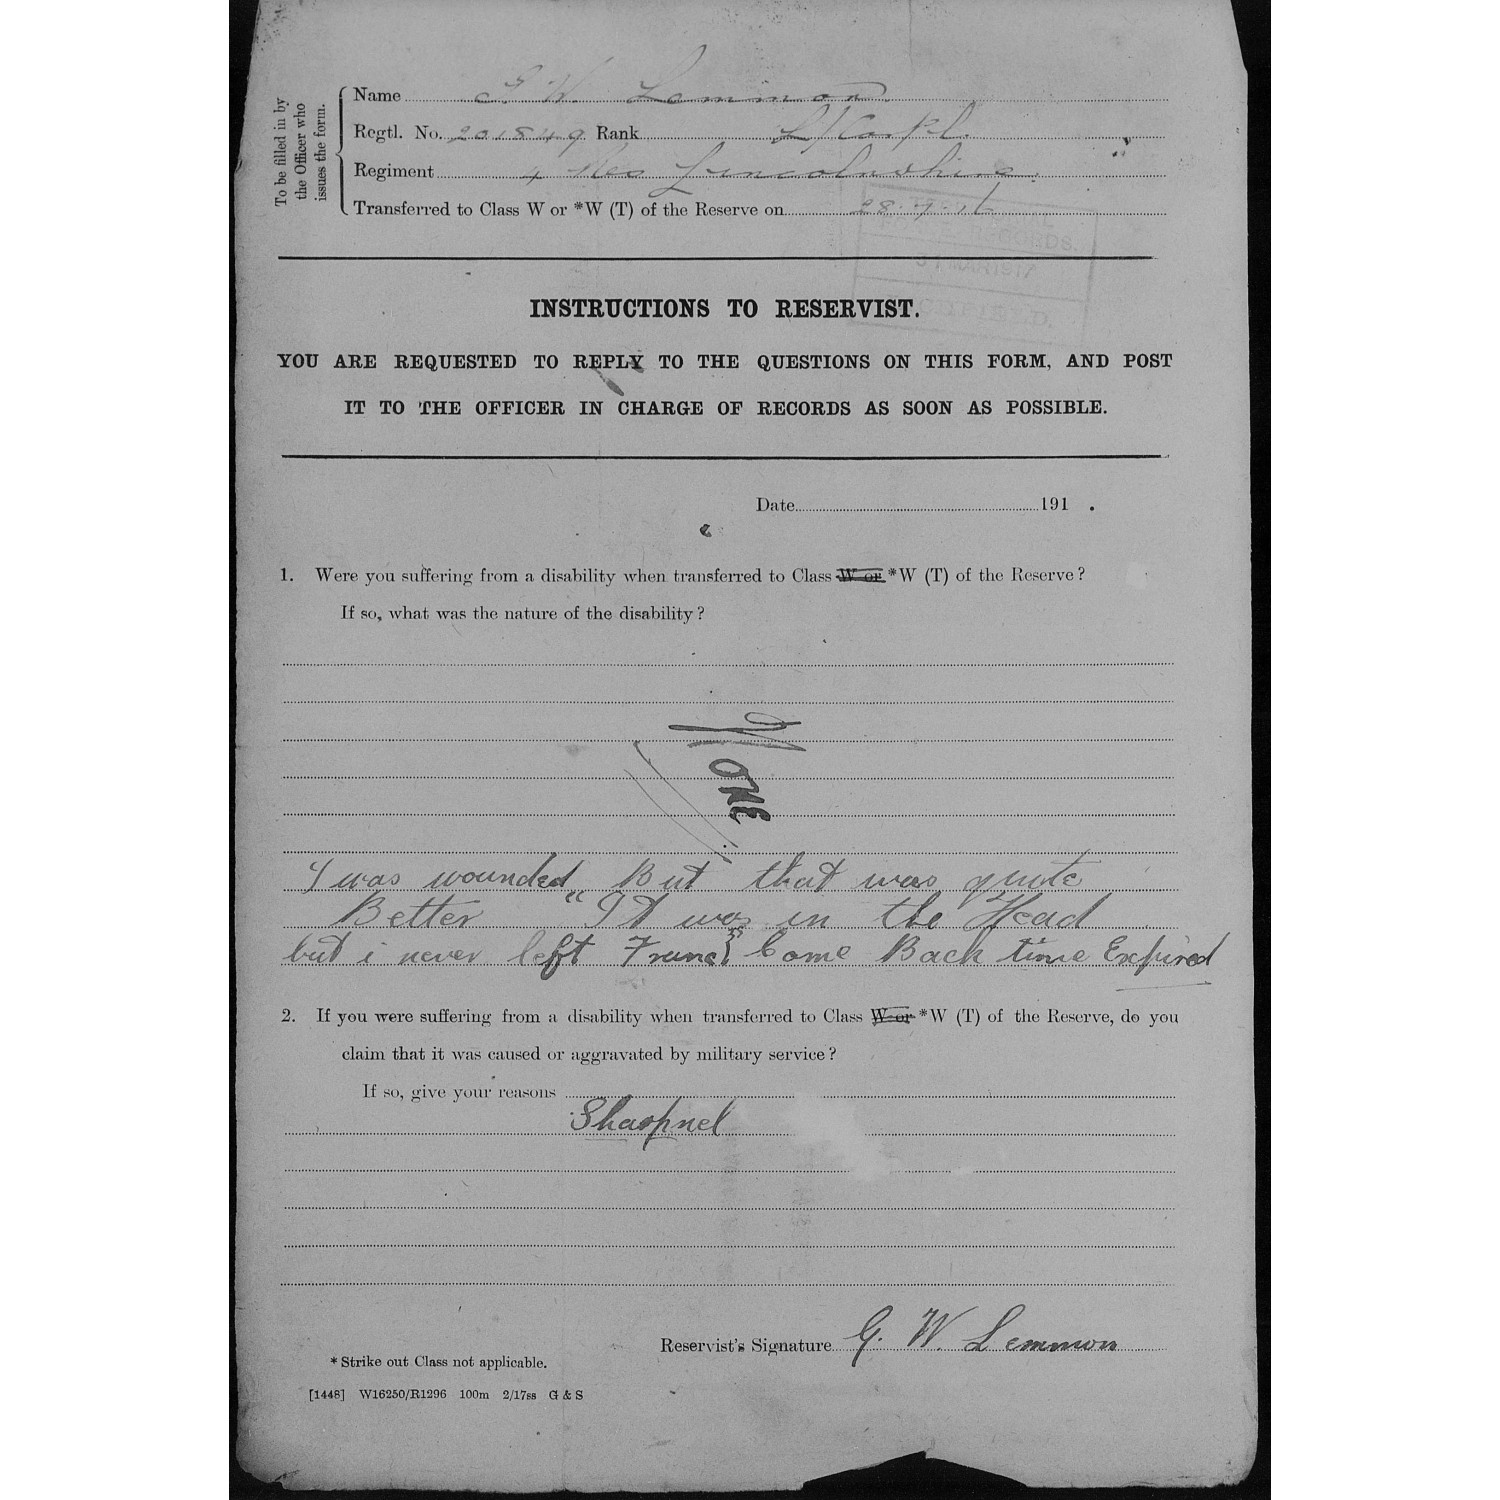 To be filled in by
the Officer who
issues the form.
Name G W Lemmon
Regtl. No. 201849 Rank L/Corpl.
Regiment 4 Res Lincolnshire
Transferred to Class W or *W (T) of the Reserve on 28.7.16
RECORDS.
31 MAR 1917
INSTRUCTIONS TO RESERVIST.
YOU ARE REQUESTED TO REPLY TO THE QUESTIONS ON THIS FORM, AND POST
IT TO THE OFFICER IN CHARGE OF RECORDS AS SOON AS POSSIBLE.
Date 191 .
1. Were you suffering from a disability when transferred to Class W or *W (T) of the Reserve?
If so, what was the nature of the disability?
None
I was wounded But that was quite
Better "It was in the Head
but i never left France Come Back time Expired
2. If you were suffering from a disability when transferred to Class W or *W (T) of the Reserve, do you
claim that it was caused or aggravated by military service?
If so, give your reasons
Sharpnel
Reservist's Signature G. W. Lemmon
* Strike out Class not applicable.
[1448] W16250/R1296 100m 2/17ss G & S